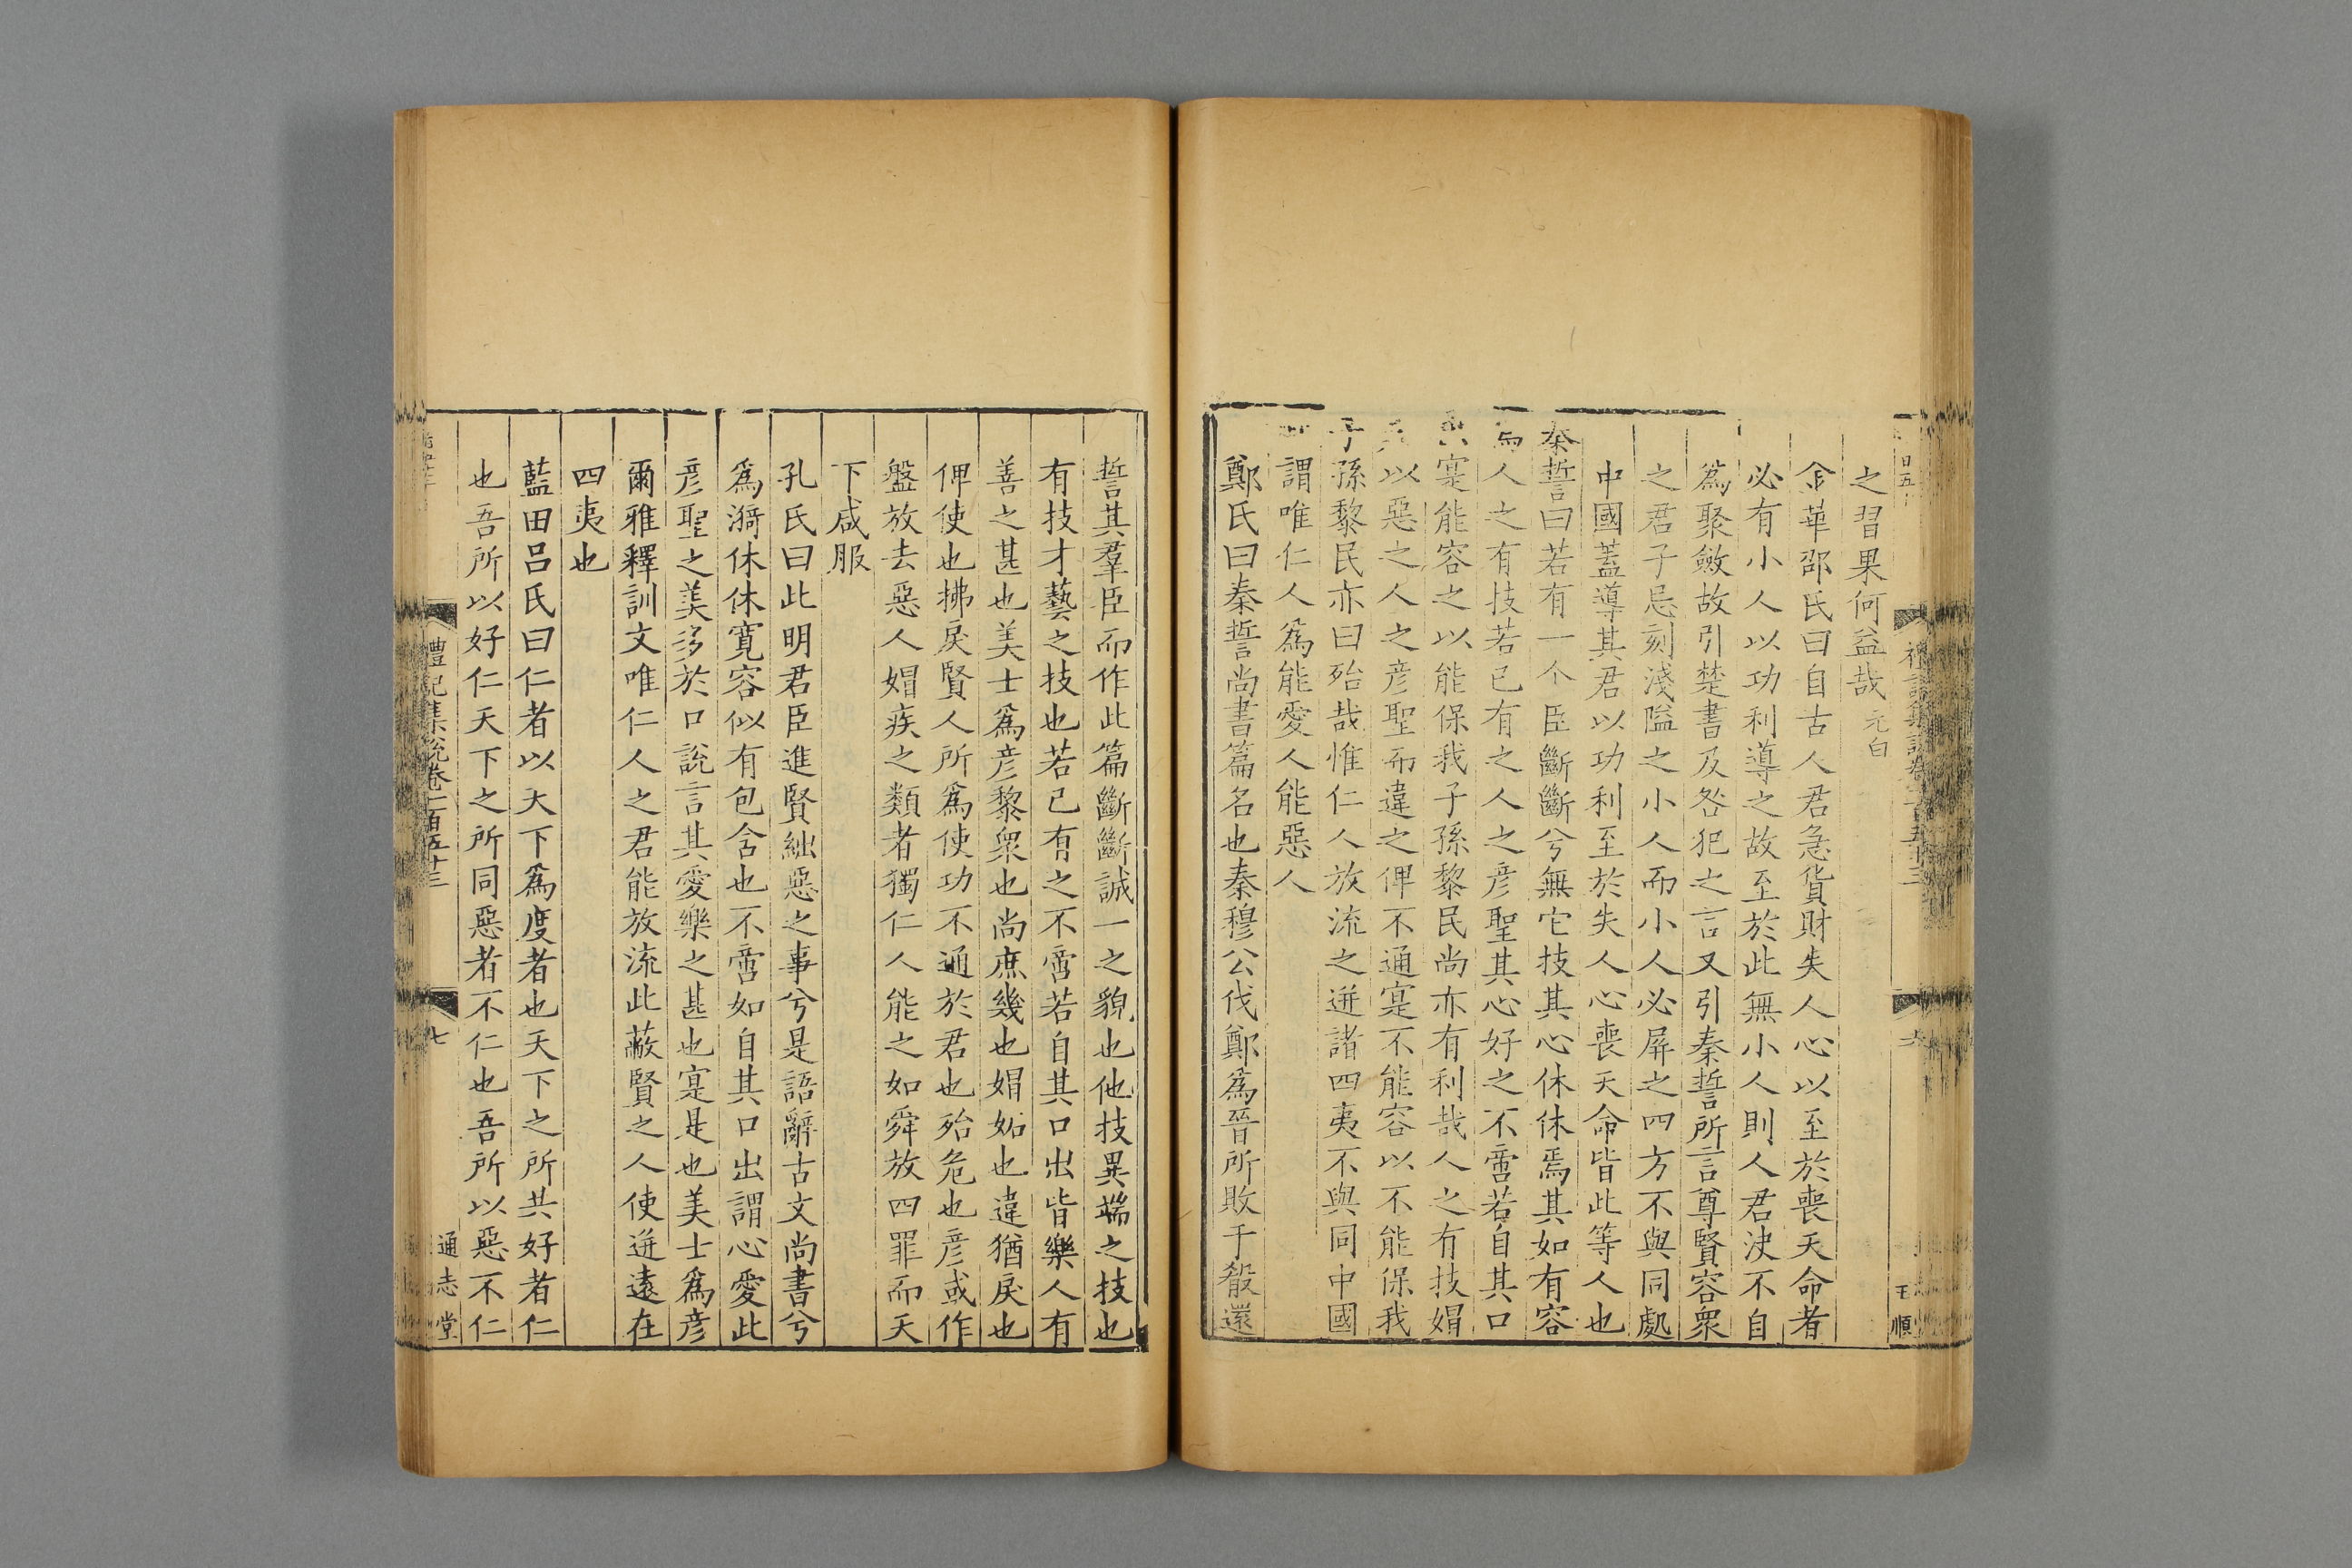 之習果何益哉元白
金華邵氏曰自古人君急貨財失人心以至於喪天命者
必有小人以功利導之故至於此無小人則人君決不自
爲聚斂故引楚書及咎犯之言又引秦誓所言尊賢容衆
之君子忌刻淺隘之小人而小人必屏之四方不與同處
中國蓋導其君以功利至於失人心喪天命皆此等人也
秦誓曰若有一个臣斷斷兮無它技其心休休焉其如有容
焉人之有技若已有之人之彥聖其心好之不啻若自其口
出寔能容之以能保我子孫黎民尚亦有利哉人之有技媢
以惡之人之彥聖而違之俾不通寔不能容以不能保我
子孫黎民亦曰殆哉惟仁人放流之迸諸四夷不與同中國
謂唯仁人爲能愛人能惡人
鄭氏曰秦誓尚書篇名也秦穆公伐鄭爲晉所敗于殽還
六
王順
誓其羣臣而作此篇斷斷誠一之貌也他技異端之技也
有技才藝之技也若已有之不啻若自其口出皆樂人有
善之甚也美士爲彥黎衆也尚庶幾也媢妬也違猶戾也
俾使也拂戾賢人所爲使功不通於君也殆危也彥或作
盤放去惡人媢疾之類者獨仁人能之如舜放四罪而天
下咸服
孔氏曰此明君臣進賢絀惡之事兮是語辭古文尚書兮
爲漪休休寬容似有包含也不啻如自其口出謂心愛此
彥聖之美多於口說言其愛樂之甚也寔是也美士爲彥
爾雅釋訓文唯仁人之君能放流此蔽賢之人使迸遠在
四夷也
藍田呂氏曰仁者以天下爲度者也天下之所共好者仁
也吾所以好仁天下之所同惡者不仁也吾所以惡不仁
禮記集說卷一百五十三
七
通志堂